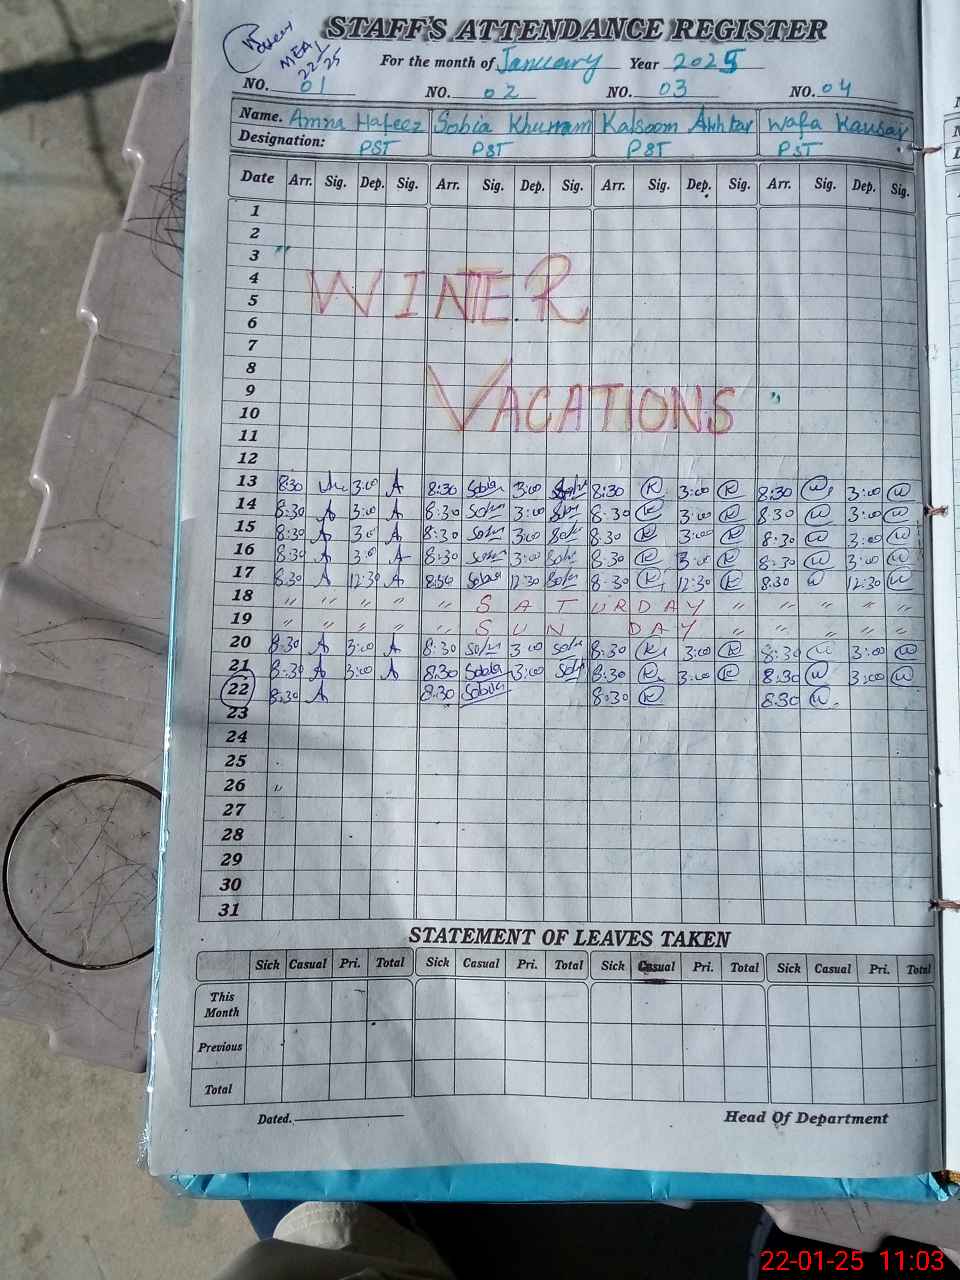 STAFF'S ATTENDANCE REGISTER
MEA
22/1/25
For the month of January Year 2025
NO. 01 NO. 02 NO. 03 NO. 04
Name. Amna Hafeez Sobia Khurram Kalsoom Akhtar Wafa Kausar
Designation: PST PST PST PST
Date Arr. Sig. Dep. Sig. Arr. Sig. Dep. Sig. Arr. Sig. Dep. Sig. Arr. Sig. Dep. Sig.
1
2
3 "
4 WINTER
5
6
7
8
9 VACATIONS "
10
11
12
13 8:30 3:00 A 8:30 Sobia 3:00 8:30 K 3:00 K 8:30 W 3:00 W
14 8:30 A 3:00 A 8:30 3:00 8:30 K 3:00 K 8:30 W 3:00 W
15 8:30 A 3:00 A 8:30 3:00 8:30 K 3:00 K 8:30 W 3:00 W
16 8:30 A 3:00 A 8:30 3:00 8:30 K 3:00 K 8:30 W 3:00 W
17 8:30 A 12:30 A Sobia 12:30 8:30 K 12:30 K 8:30 W 12:30 W
18 " " " " " SATURDAY " " " " "
19 " " " " " SUN DAY " " " " "
20 8:30 A 3:00 A 8:30 3:00 8:30 K 3:00 K 8:30 W 3:00 W
21 8:30 A 3:00 A 8:30 Sobia 3:00 8:30 K 3:00 K 8:30 W 3:00 W
22 8:30 A 8:30 Sobia 8:30 K 8:30 W
23
24
25
26
27
28
29
30
31
STATEMENT OF LEAVES TAKEN
Sick Casual Pri. Total Sick Casual Pri. Total Sick Casual Pri. Total Sick Casual Pri. Total
This
Month
Previous
Total
Dated. Head Of Department
22-01-25 11:03